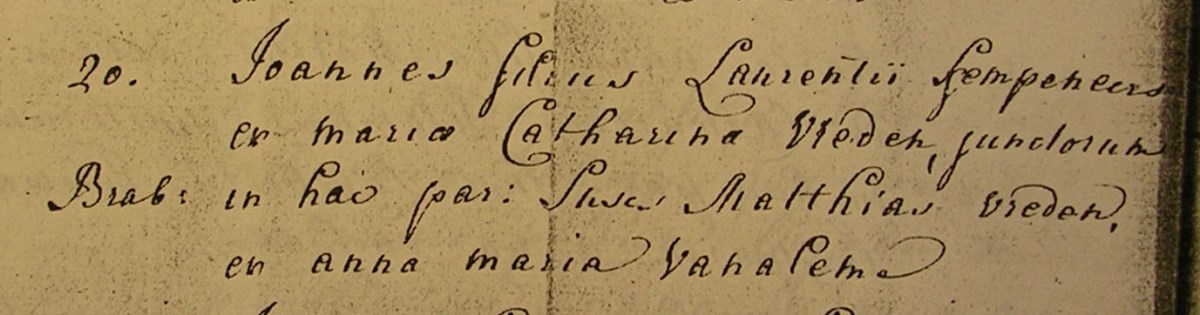 20. Joannes filius Laurentii Sempeneers
en maria Catharina Vreden, junctorum
Brab: in hac par: Susc. Matthias vreden,
en anna maria Vanalem